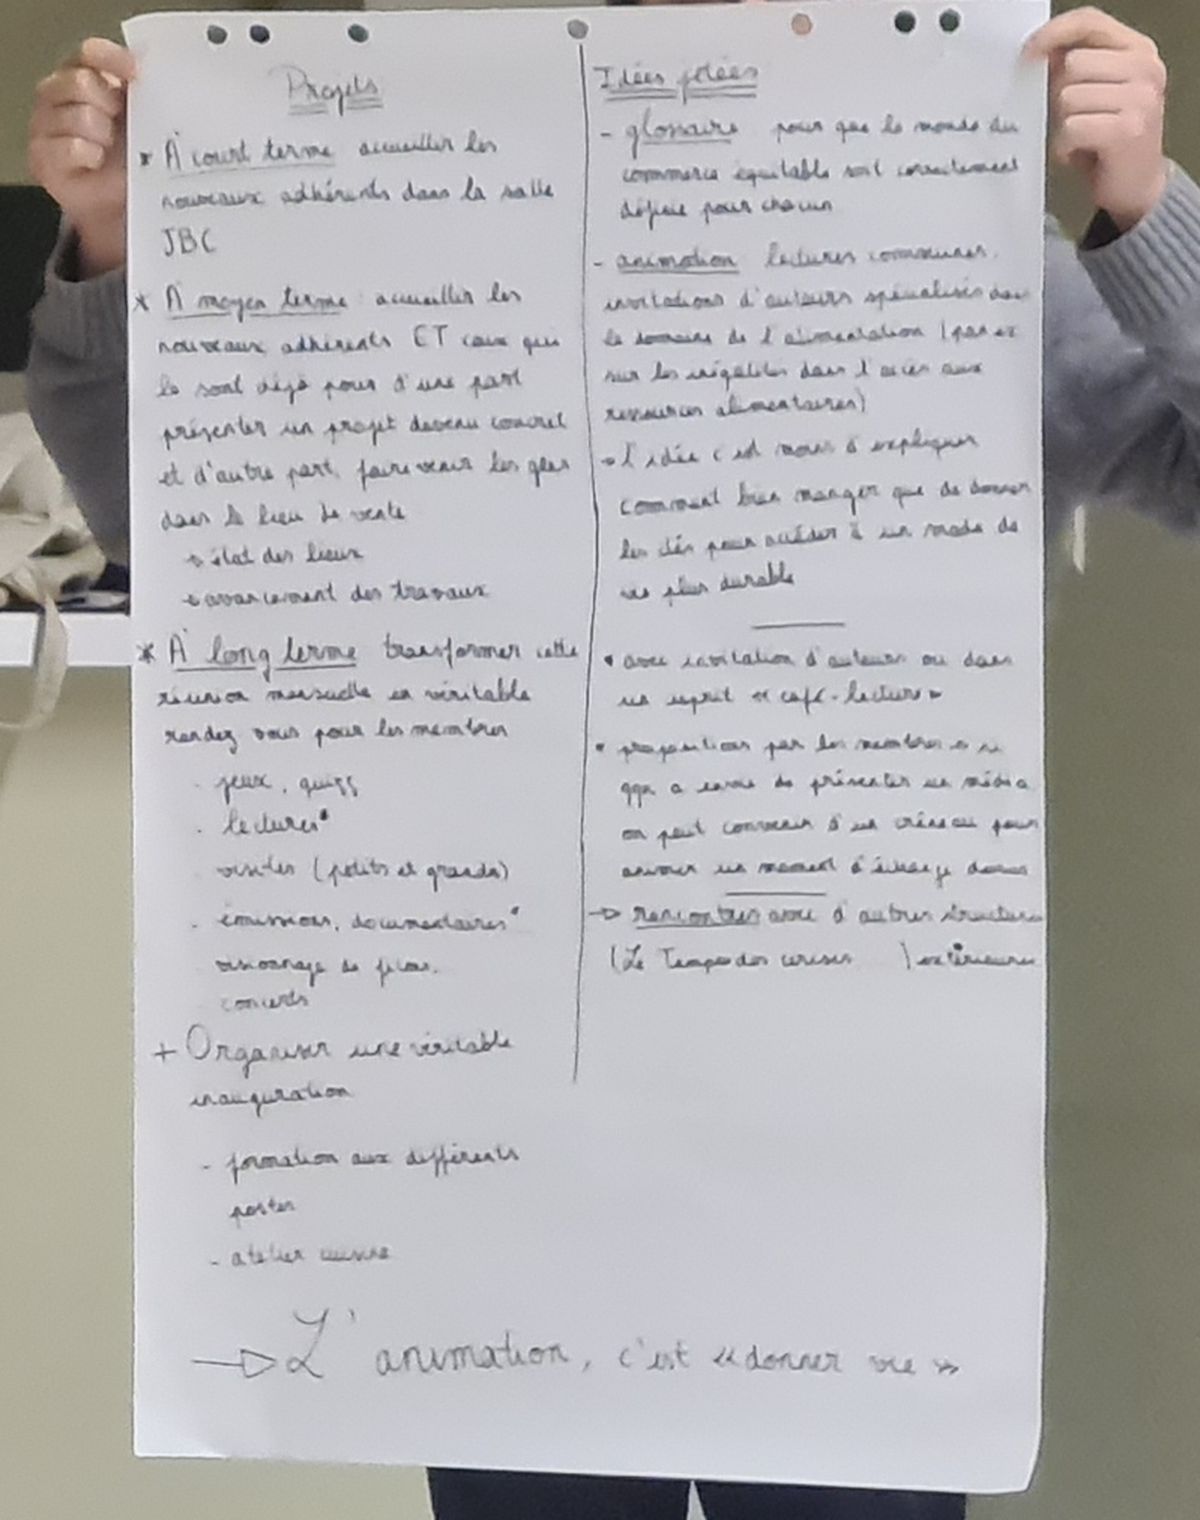 Projets
* À court terme accueillir les
nouveaux adhérents dans la salle
JBC
* À moyen terme accueillir les
nouveaux adhérents ET ceux qui
le sont déjà pour d'une part
présenter un projet devenu concret
et d'autre part, faire venir les gens
dans le lieu de vente
→ état des lieux
→ avancement des travaux
* À long terme transformer cette
réunion mensuelle en véritable
rendez vous pour les membres
- jeux, quizz
- lectures*
visites (petits et grands)
- émissions, documentaires*
visionnage de films,
concerts
+ Organiser une véritable
inauguration
- formation aux différents
postes
- atelier cuisine
Idées jetées
- glossaire pour que le monde du
commerce équitable soit correctement
défini pour chacun
- animation lectures communes,
invitations d'auteurs spécialisés dans
le domaine de l'alimentation (par ex
sur les inégalités dans l'accès aux
ressources alimentaires)
→ l'idée c'est moins d'expliquer
comment bien manger que de donner
les clés pour accéder à un mode de
vie plus durable
* avec invitation d'auteurs ou dans
un esprit « café-lecture »
* propositions par les membres → si
qqn a envie de présenter un média
on peut convenir d'un créneau pour
animer un moment d'échange
→ rencontres avec d'autres structures
(Le Temps des cerises ) extérieures
→ L'animation, c'est « donner vie »